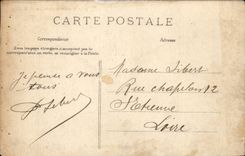 CARTE POSTALE
Correspondance
Adresse
Tous les pays étrangers n'acceptent pas la
se renseigner à la Poste
Je pense à vous
tous
Madame Sibert
Rue Chapelon 12
St Etienne
Loire